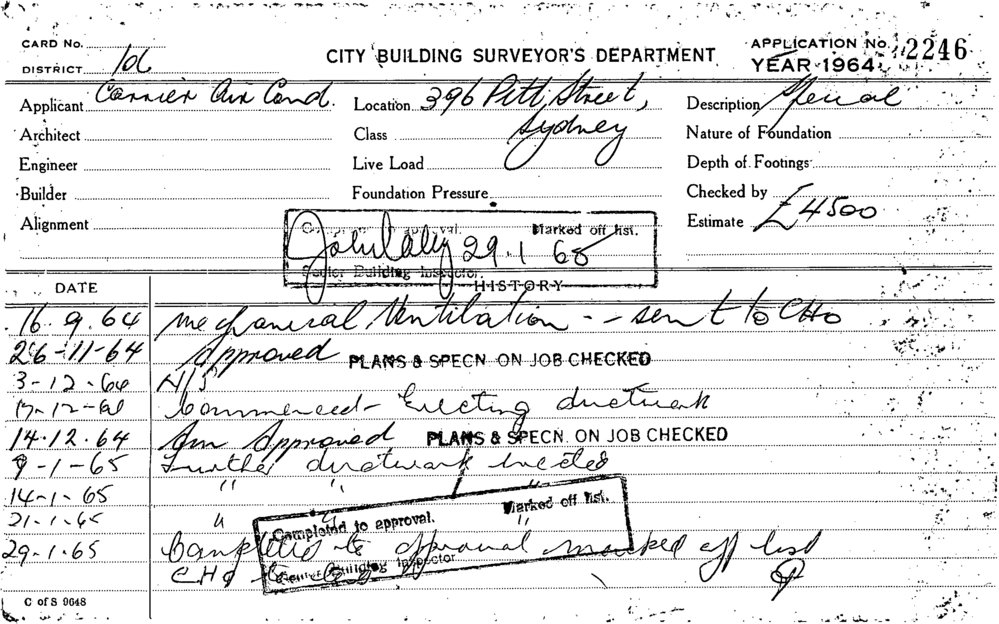 CARD No.
CITY BUILDING SURVEYOR'S DEPARTMENT
APPLICATION No. 2246
DISTRICT 10c
YEAR 1964
Applicant Carrier Air Cond.
Location 396 Pitt Street,
Sydney
Description Special
Architect
Class
Nature of Foundation
Engineer
Live Load
Depth of Footings
Builder
Foundation Pressure
Checked by
Alignment
Estimate £4500
Completed to approval. Marked off list.
29.1 65
Senior Building Inspector.
HISTORY
DATE
16.9.64 Mechanical Ventilation -- sent to CHO
26-11-64 Approved PLANS & SPECN. ON JOB CHECKED
3-12-64 N/S
Commenced - Erecting ductwork
14.12.64 Am Approved PLANS & SPECN. ON JOB CHECKED
9-1-65 Further ductwork erected
14-1-65 " " "
21-1-65 " " "
Completed to approval. Marked off list.
29-1.65 Completed to approval marked off list
CHO
Senior Building Inspector
C of S 9648